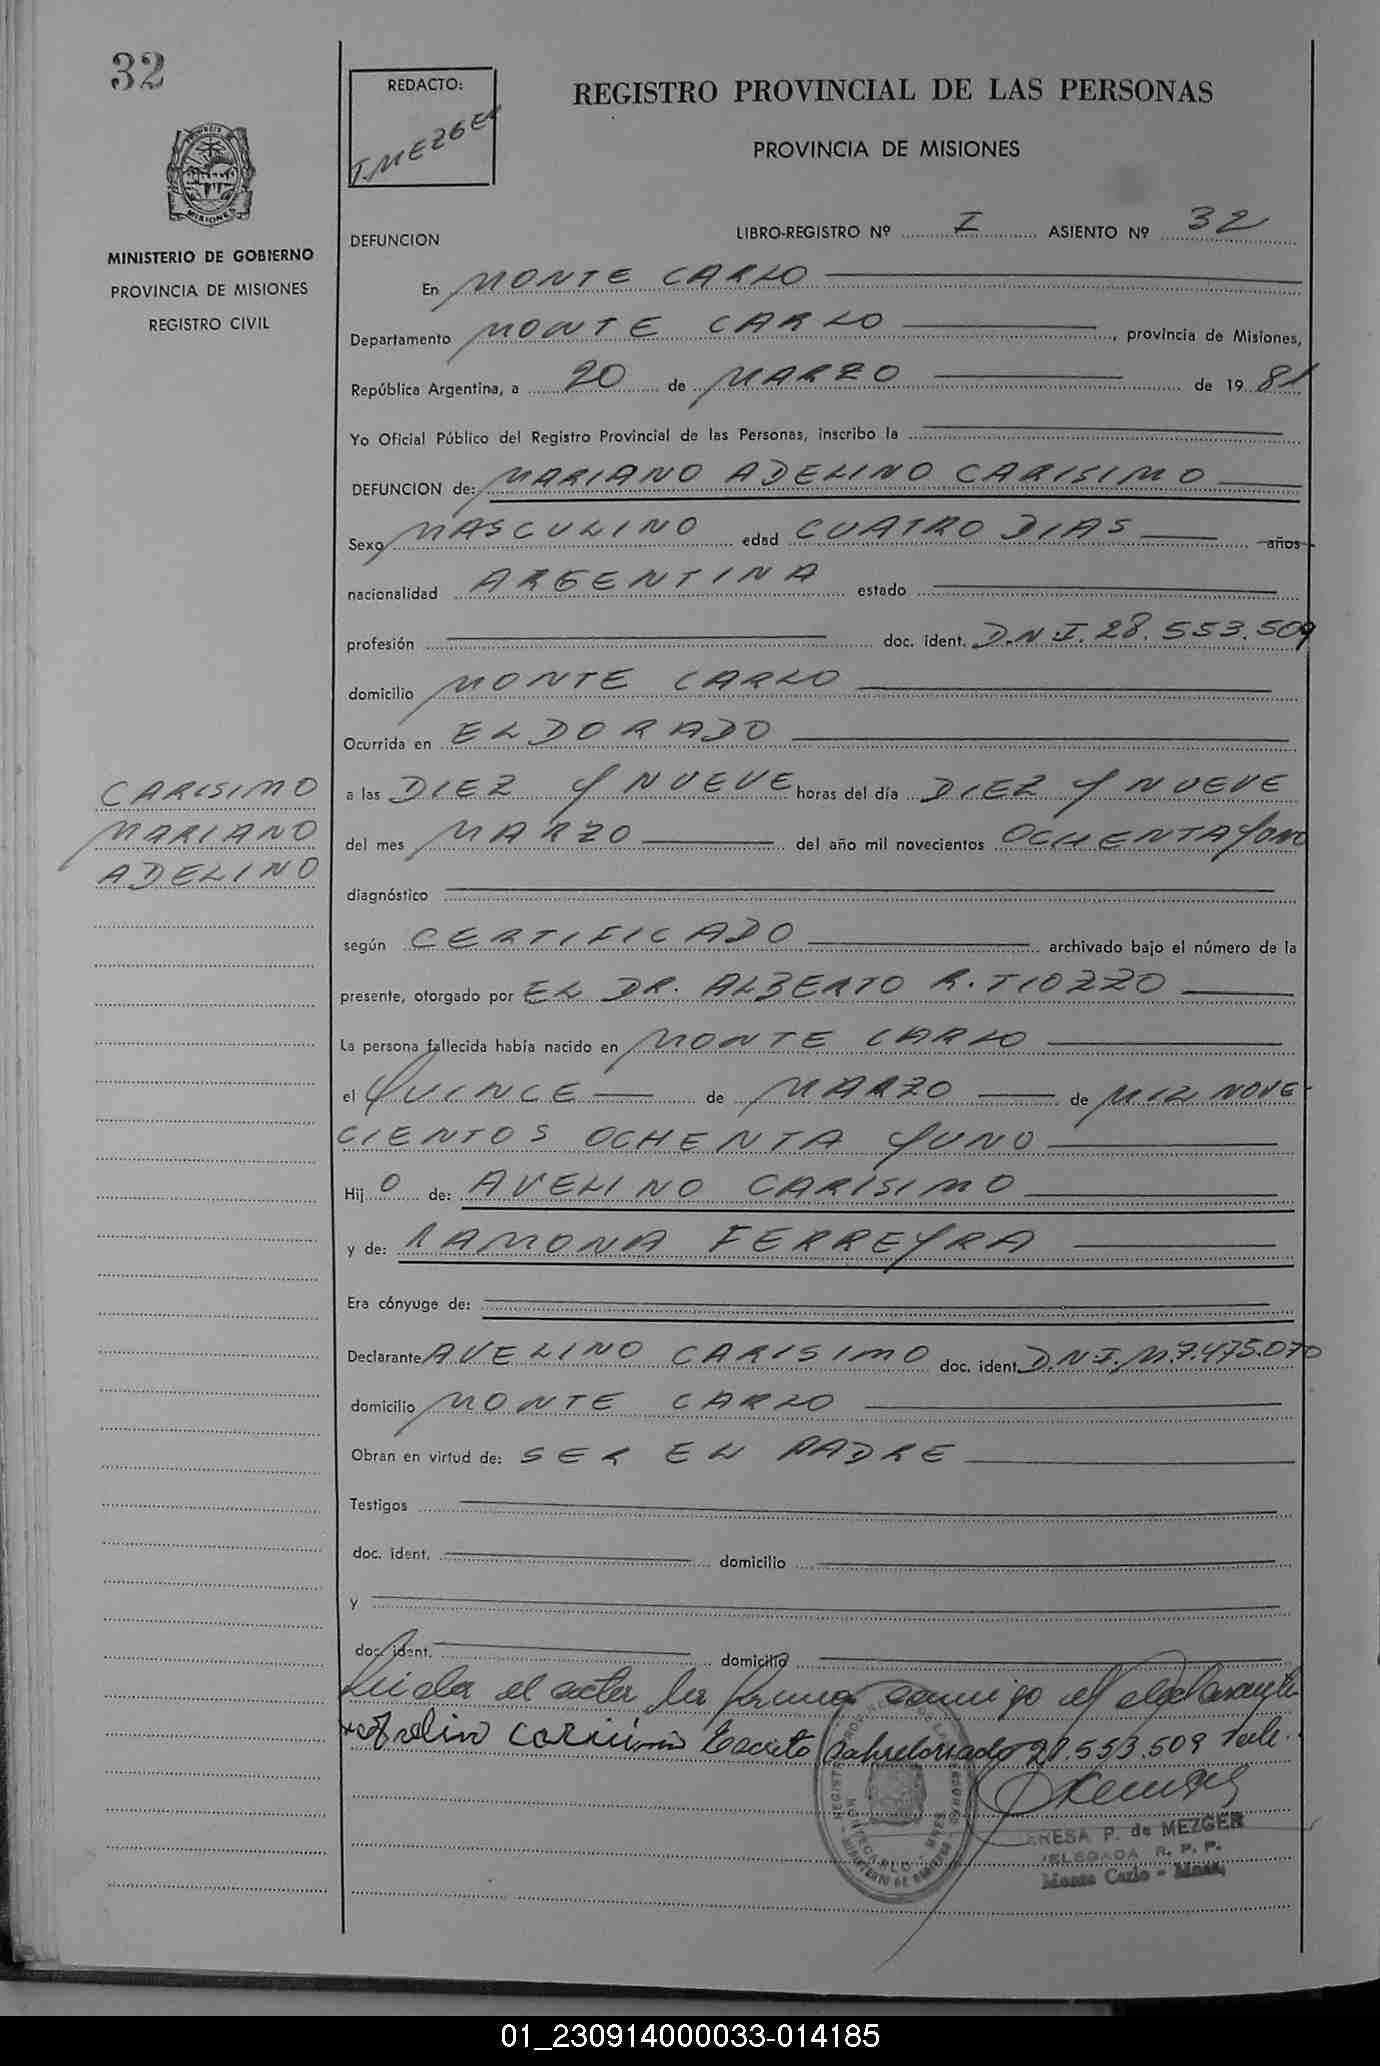 32
REDACTO:
T. MEZGER
REGISTRO PROVINCIAL DE LAS PERSONAS
PROVINCIA DE MISIONES
MISIONES
MINISTERIO DE GOBIERNO
PROVINCIA DE MISIONES
REGISTRO CIVIL
DEFUNCION
LIBRO-REGISTRO Nº I ASIENTO Nº 32
En MONTE CARLO
Departamento MONTE CARLO, provincia de Misiones,
República Argentina, a 20 de MARZO de 1981
Yo Oficial Público del Registro Provincial de las Personas, inscribo la
DEFUNCION de: MARIANO ADELINO CARISIMO
Sexo MASCULINO edad CUATRO DIAS años
nacionalidad ARGENTINA estado
profesión doc. ident. D.N.I. 28.553.509
domicilio MONTE CARLO
Ocurrida en ELDORADO
CARISIMO
MARIANO
ADELINO
a las DIEZ Y NUEVE horas del día DIEZ Y NUEVE
del mes MARZO del año mil novecientos OCHENTA Y UNO
diagnóstico
según CERTIFICADO archivado bajo el número de la
presente, otorgado por EL DR. ALBERTO R. TIOZZO
La persona fallecida había nacido en MONTE CARLO
el QUINCE de MARZO de MIL NOVE-
CIENTOS OCHENTA Y UNO
Hijo de: AVELINO CARISIMO
y de: RAMONA FERREYRA
Era cónyuge de:
Declarante AVELINO CARISIMO doc. ident. D.N.I. M. 7.475.070
domicilio MONTE CARLO
Obran en virtud de: SER EL PADRE
Testigos
doc. ident. domicilio
y
doc. ident. domicilio
Leida el acta la firma conmigo el declarante
Escrito sobreborrado 28.553.509 vale.
ERESA P. de MEZGER
DELEGADA R. P. P.
Monte Carlo - Mnes.
01_230914000033-014185